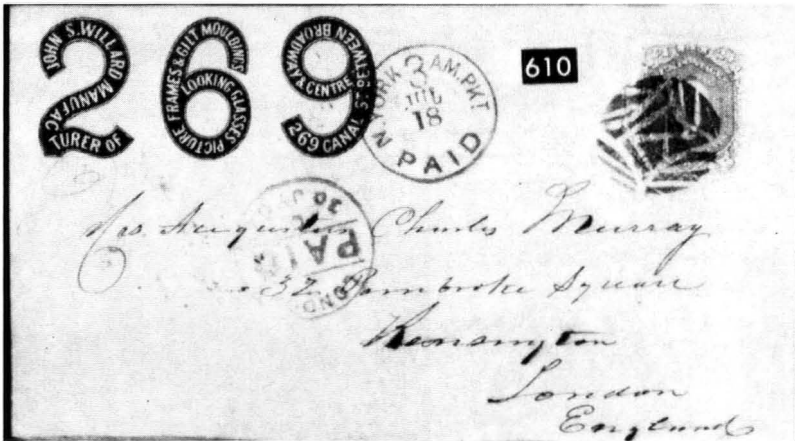 JOHN S. WILLARD MANUFAC
TURER OF
PICTURE FRAMES & GILT MOULDINGS
LOOKING GLASSES
269 CANAL ST BETWEEN BROADWAY
& CENTRE
N. YORK AM. PKT
3
JUL
18
PAID
610
LOND
PAID
Mrs. Augustus Charles Murray
32 Pembroke Square
Kensington
London
England